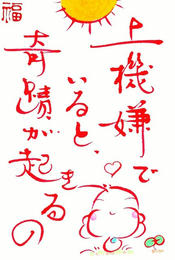 福
上機嫌で
いると、
奇蹟が起きるの